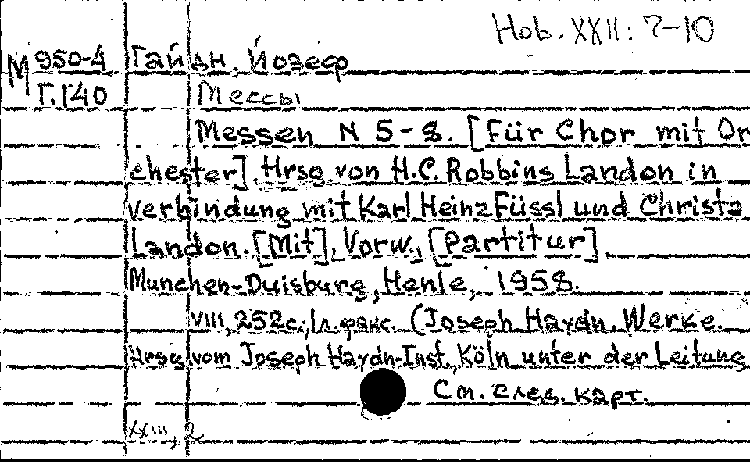 Hob. XXII: 7-10
М 950-4 Гайдн, Йозеф
Г.140 Мессы
Messen N 5-8. [Für Chor mit Or
chester]. Hrsg von H.C. Robbins Landon in
verbindung mit Karl Heinz Füssl und Christa
Landon. [Mit], Vorw., [Partitur].
Munchen-Duisburg, Henle, 1958.
VIII, 252с.; 1л. факс. (Joseph Haydn. Werke.
Hrsg vom Joseph Haydn-Inst. Köln unter der Leitung
См. след. карт.
XXIII, 2